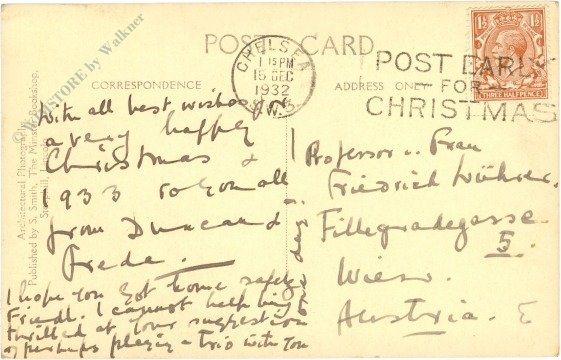 © WEBSTORE by Walkner
POST CARD
CORRESPONDENCE
ADDRESS ONLY
CHELSEA
1 15 PM
15 DEC
1932
S.W.3
POST EARLY
FOR
CHRISTMAS
1½
1½
THREE HALFPENCE
Architectural Photograph
Published by S. Smith, The Minster Bookshop,
With all best wishes for
a very happy
Christmas &
1933 to you all
from Duncan and
Freda.
I hope you got home safely
Friedl. I cannot help being
thrilled at your suggestion
of perhaps playing a trio with you
one day!
Professor u. Frau
Friedrich Wührer.
Fillegradegasse
5.
Wien.
Austria.